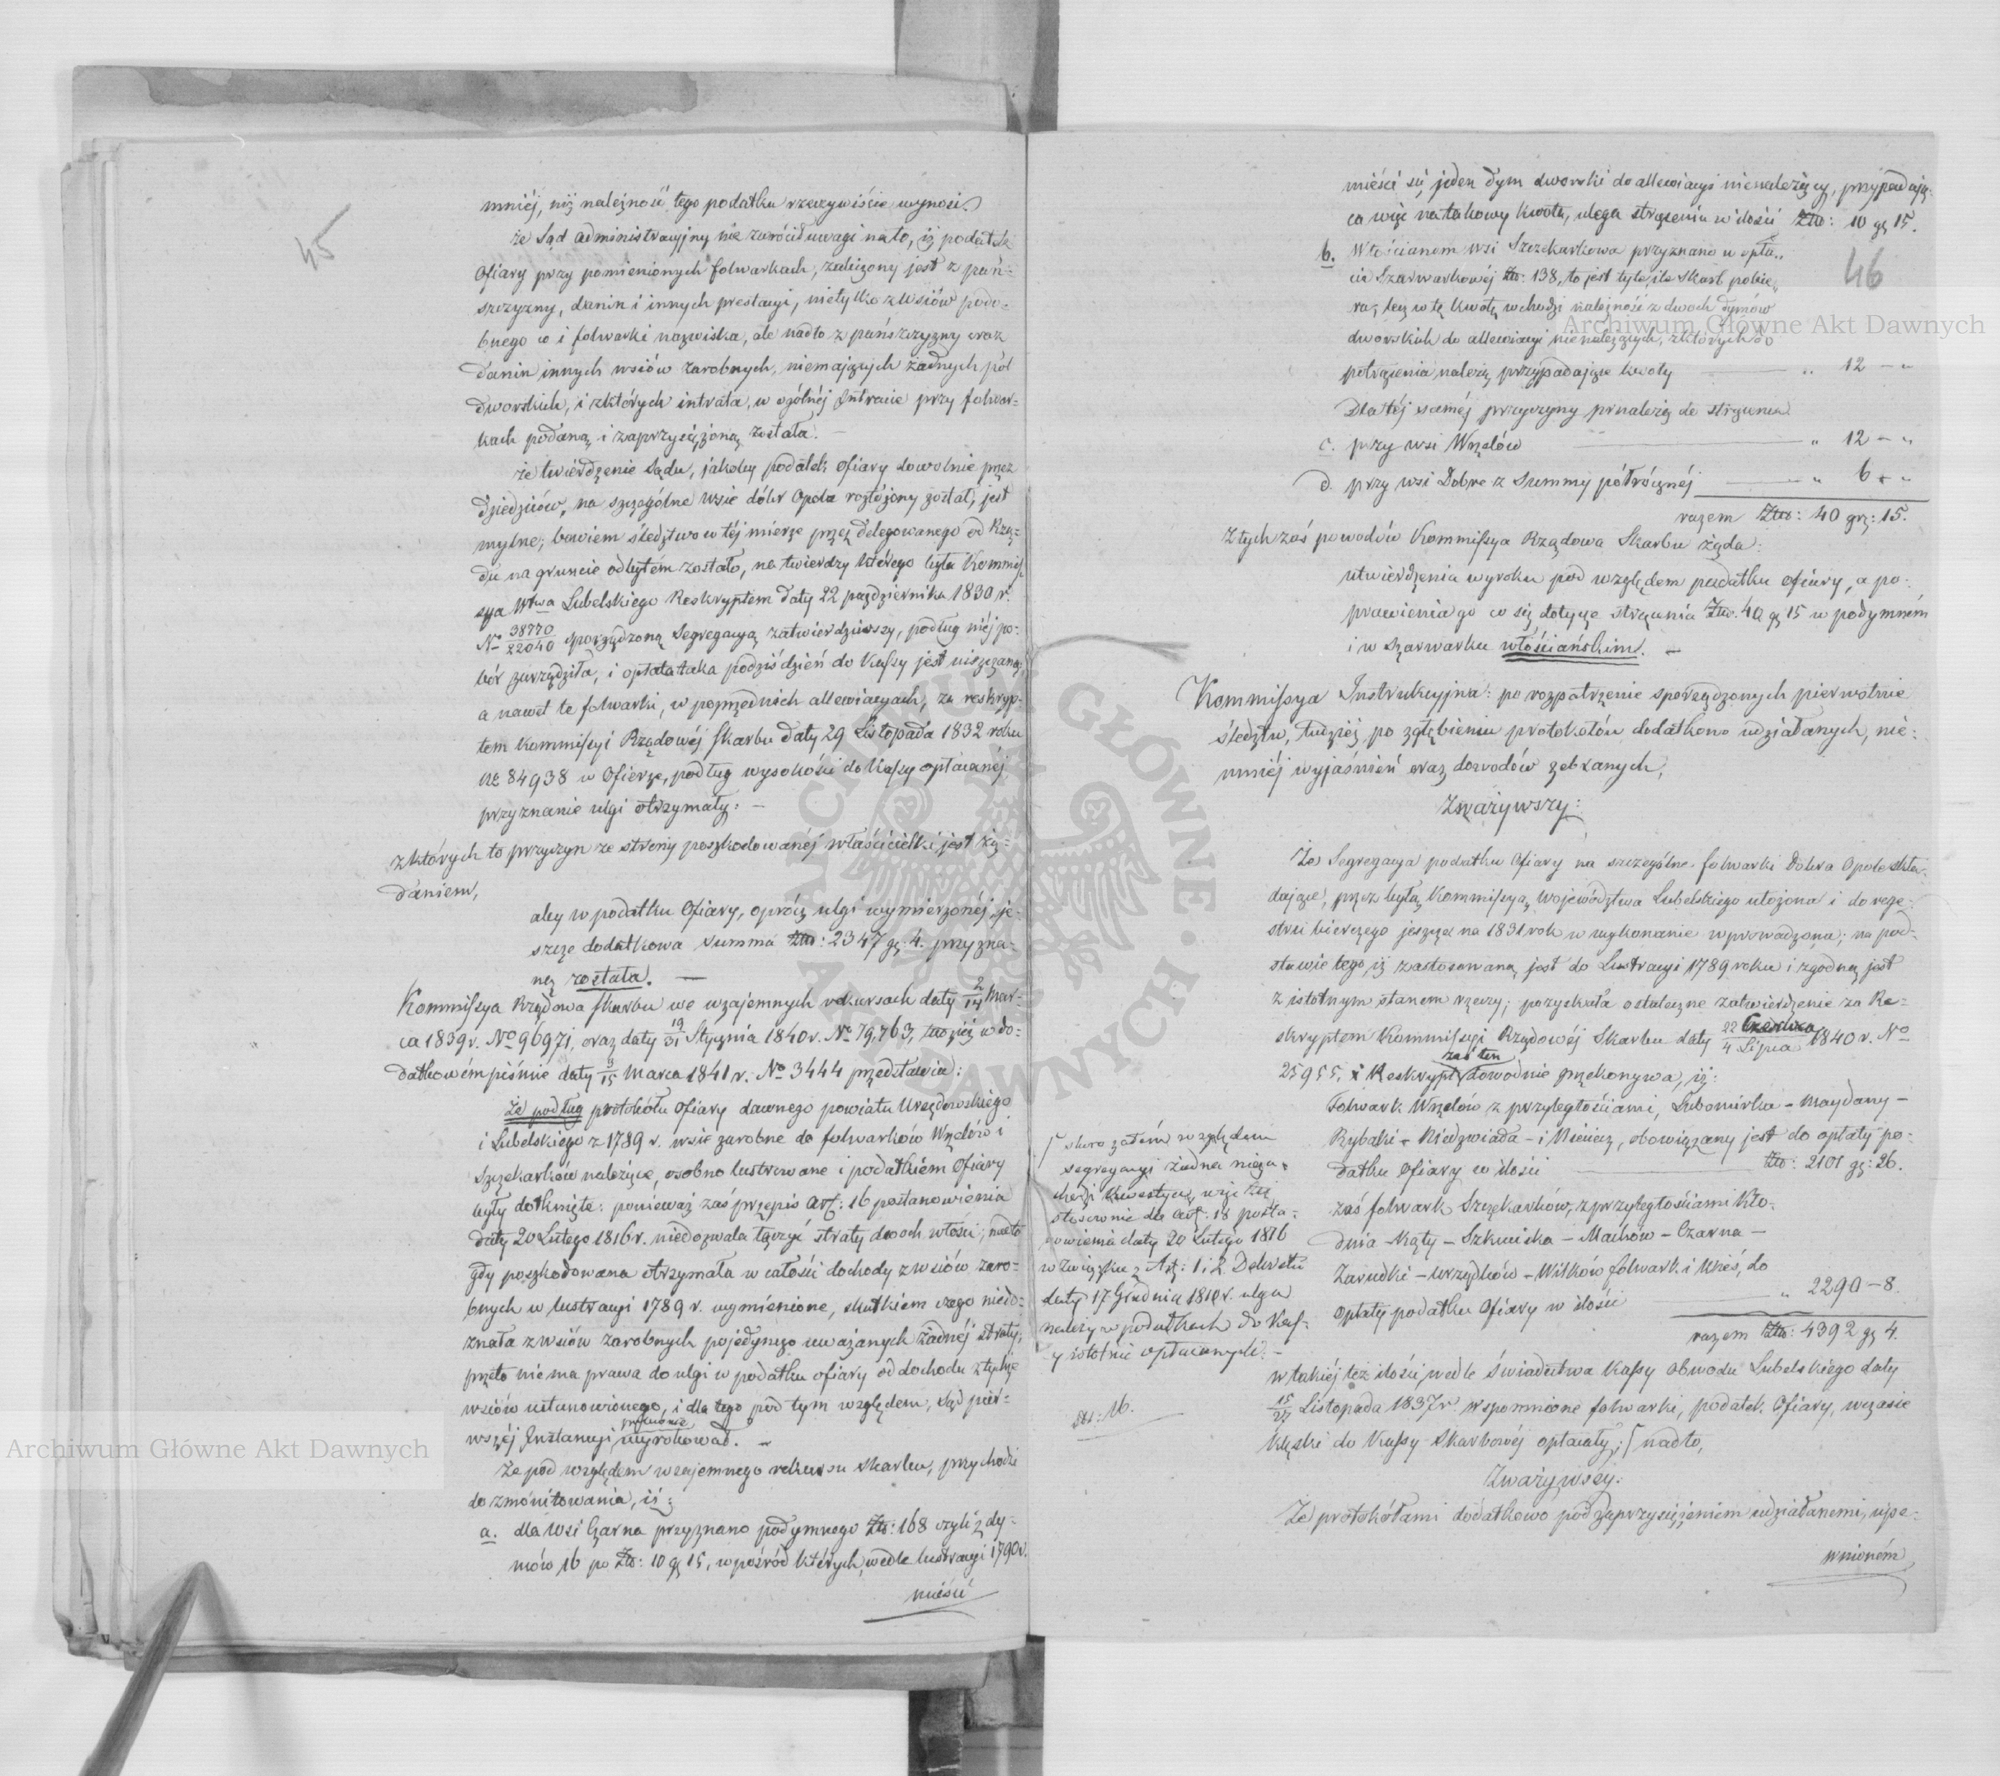 45
mniéj, niż należność tego podatku rzeczywiście wynosi.
że Sąd administracyjny nie zwrócił uwagi na to, iż podatek
Ofiary przy pomienionych folwarkach, zaliczony jest z pań-
szczyzny, danin i innych prestacyi, nietylko z wsiów podo-
bnego co i folwarki nazwiska, ale nadto z pańszczyzny oraz
danin innych wsiów zarobnych, niemających żadnych pól
dworskich, i z których intrata, w ogólnéj Intracie przy folwar-
kach podaną i zaprzysiężoną została. —
że twierdzenie Sądu, jakoby podatek Ofiary dowolnie przez
dziedziców, na szczególne wsie dóbr Opola rozłożony został, jest
mylne; bowiem śledztwo w téj mierze przez delegowanego od Rzą-
du na gruncie odbytem zostało, na twierdzy którego była Kommis-
sya Wtwa Lubelskiego Reskryptem daty 22 października 1830 r.
No 38770/22040 sporządzoną Segregacyą zatwierdziwszy, podług niéj po-
bór zarządziła, i opłata taka podziśdzień do Kassy jest uiszczaną,
a nawet te folwarki, w poprzednich allewiacyach, za reskryp-
tem Kommissyi Rządowéj Skarbu daty 29 Listopada 1832 roku
No 84938 w Ofierze, podług wysokości do Kassy opłacanéj
przyznanie ulgi otrzymały: —
z których to przyczyn ze strony poszkodowanéj właścicielki jest żą-
daniem,
aby w podatku Ofiary, oprócz ulgi wymierzonéj, je-
szcze dodatkowa summa Złt: 2347 gr. 4. przyzna-
ną została. —
Kommissya Rządowa Skarbu we wzajemnych rekursach daty 2/14 Mar-
ca 1839 r. No 96971, oraz daty 19/31 Stycznia 1840 r. No 79,763, tudzież w do-
datkowém piśmie daty 3/15 Marca 1841 r. No 3444 przedstawia:
Że podług protokółu Ofiary dawnego powiatu Urzędowskiego
i Lubelskiego z 1789 r. wsie zarobne do folwarków Wrzelów i
Szczekarków należące, osobno lustrowane i podatkiem Ofiary
były dotknięte: ponieważ zaś przepis Art: 16 postanowienia
daty 20 Lutego 1816 r. niedozwala łączyć straty dwóch włości; nadto
gdy poszkodowana otrzymała w całości dochody z wsiów zaro-
bnych w lustracyi 1789 r. wymienione, skutkiem czego niedo-
znała z wsiów zarobnych pojedynczo uważanych żadnéj straty;
przeto nie ma prawa do ulgi w podatku ofiary od dochodu z tychże
wsiów ustanowionego, i dla tego pod tym względem, Sąd pier-
wszéj Instancyi wyrokował. —
że pod względem wzajemnego rekursu Skarbu, przychodzi
do zmonitowania, iż:
a. dla wsi Czarna przyznano podymnego Złt: 168 czyli z dy-
mów 16 po Złt: 10 gr 15, wpośród których, wedle lustracyi 1790 r.
mieści
46
mieści się jeden dym dworski do allewiacyi nienależący, przypadają-
ca więc na takowy kwota, ulega strąceniu w ilości Złt: 10 gr 15.
b. Włościanom wsi Szczekarkowa przyznano w opła-
cie Szarwarkowéj Złt: 138, to jest tyle, ile Skarb pobie-
ra, lecz w tę kwotę wchodzi należność z dwóch dymów
dworskich do allewiacyi nienależących, z których do
potrącenia należą przypadające kwoty — „ 12 – „
Dla téj saméj przyczyny prnależą do strącenia
c. przy wsi Wrzelów — „ 12 – „
d. przy wsi Dobre z Summy półrocznéj — „ 6 – „
razem Złt: 40 gr: 15.
Z tych zaś powodów Kommissya Rządowa Skarbu żąda:
utwierdzenia wyroku pod względem podatku ofiary, a po-
prawienia go co się dotyczy strącenia Złt. 40 gr 15 w podymném
i w szarwarku włościańskim. —
Kommissya Instrukcyjna: po rozpatrzenie sporządzonych pierwotnie
śledztw, tudzież po zgłębieniu protokołów dodatkowo udziałanych, nie-
mniéj wyjaśnień oraz dowodów zebranych,
Zważywszy:
Że Segregacya podatku Ofiary na szczególne folwarki Dobra Opole skła-
dające, przez byłą Kommissyą Województwa Lubelskiego ułożona i do reje-
stru bierczego jeszcze na 1831 rok w wykonanie wprowadzona; na pod-
stawie tego, iż zastosowaną jest do Lustracyi 1789 roku i zgodną jest
z istotnym stanem rzeczy; pozyskała ostateczne zatwierdzenie za Re-
skryptem Kommissyi Rządowéj Skarbu daty 22 Czerwca/4 Lipca 1840 r. No
25955, zaś ten Reskrypt dowodnie przekonywa, iż:
Folwark Wrzelów z przyległościami, Lubomirka – Maydany –
Rybaki – Niedzwiada – i Niesiecz, obowiązany jest do opłaty po-
datku Ofiary w ilości — Złt: 2101 gr: 26.
zaś folwark Szczekarków, z przyległościami Kło-
dnia – Kąty – Szkuciska – Machów – Czarna –
Zarudki – Urządków – Wilków folwark i Wieś, do
opłaty podatku Ofiary w ilości — „ 2290 – 8.
razem Złt: 4392 gr 4.
w takiéj też ilości, wedle świadectwa Kassy obwodu Lubelskiego daty
15/27 Listopada 1837 r wspomnione folwarki, podatek Ofiary, w czasie
klęski do Kassy Skarbowéj opłacały; nadto,
Zważywszy:
Że protokółami dodatkowo pod zaprzysiężeniem udziałanemi, upe-
wnioném
skoro zatem względem
segregacyi żadna nieza-
chodzi kwestya, więc też
stosownie do Art. 18 posta-
nowienia daty 20 Lutego 1816
w związku z Art: 1 i 2 Dekretu
daty 17 Grudnia 1810 r. ulga
należy w podatkach do Kas-
sy istotnie opłacanych. –